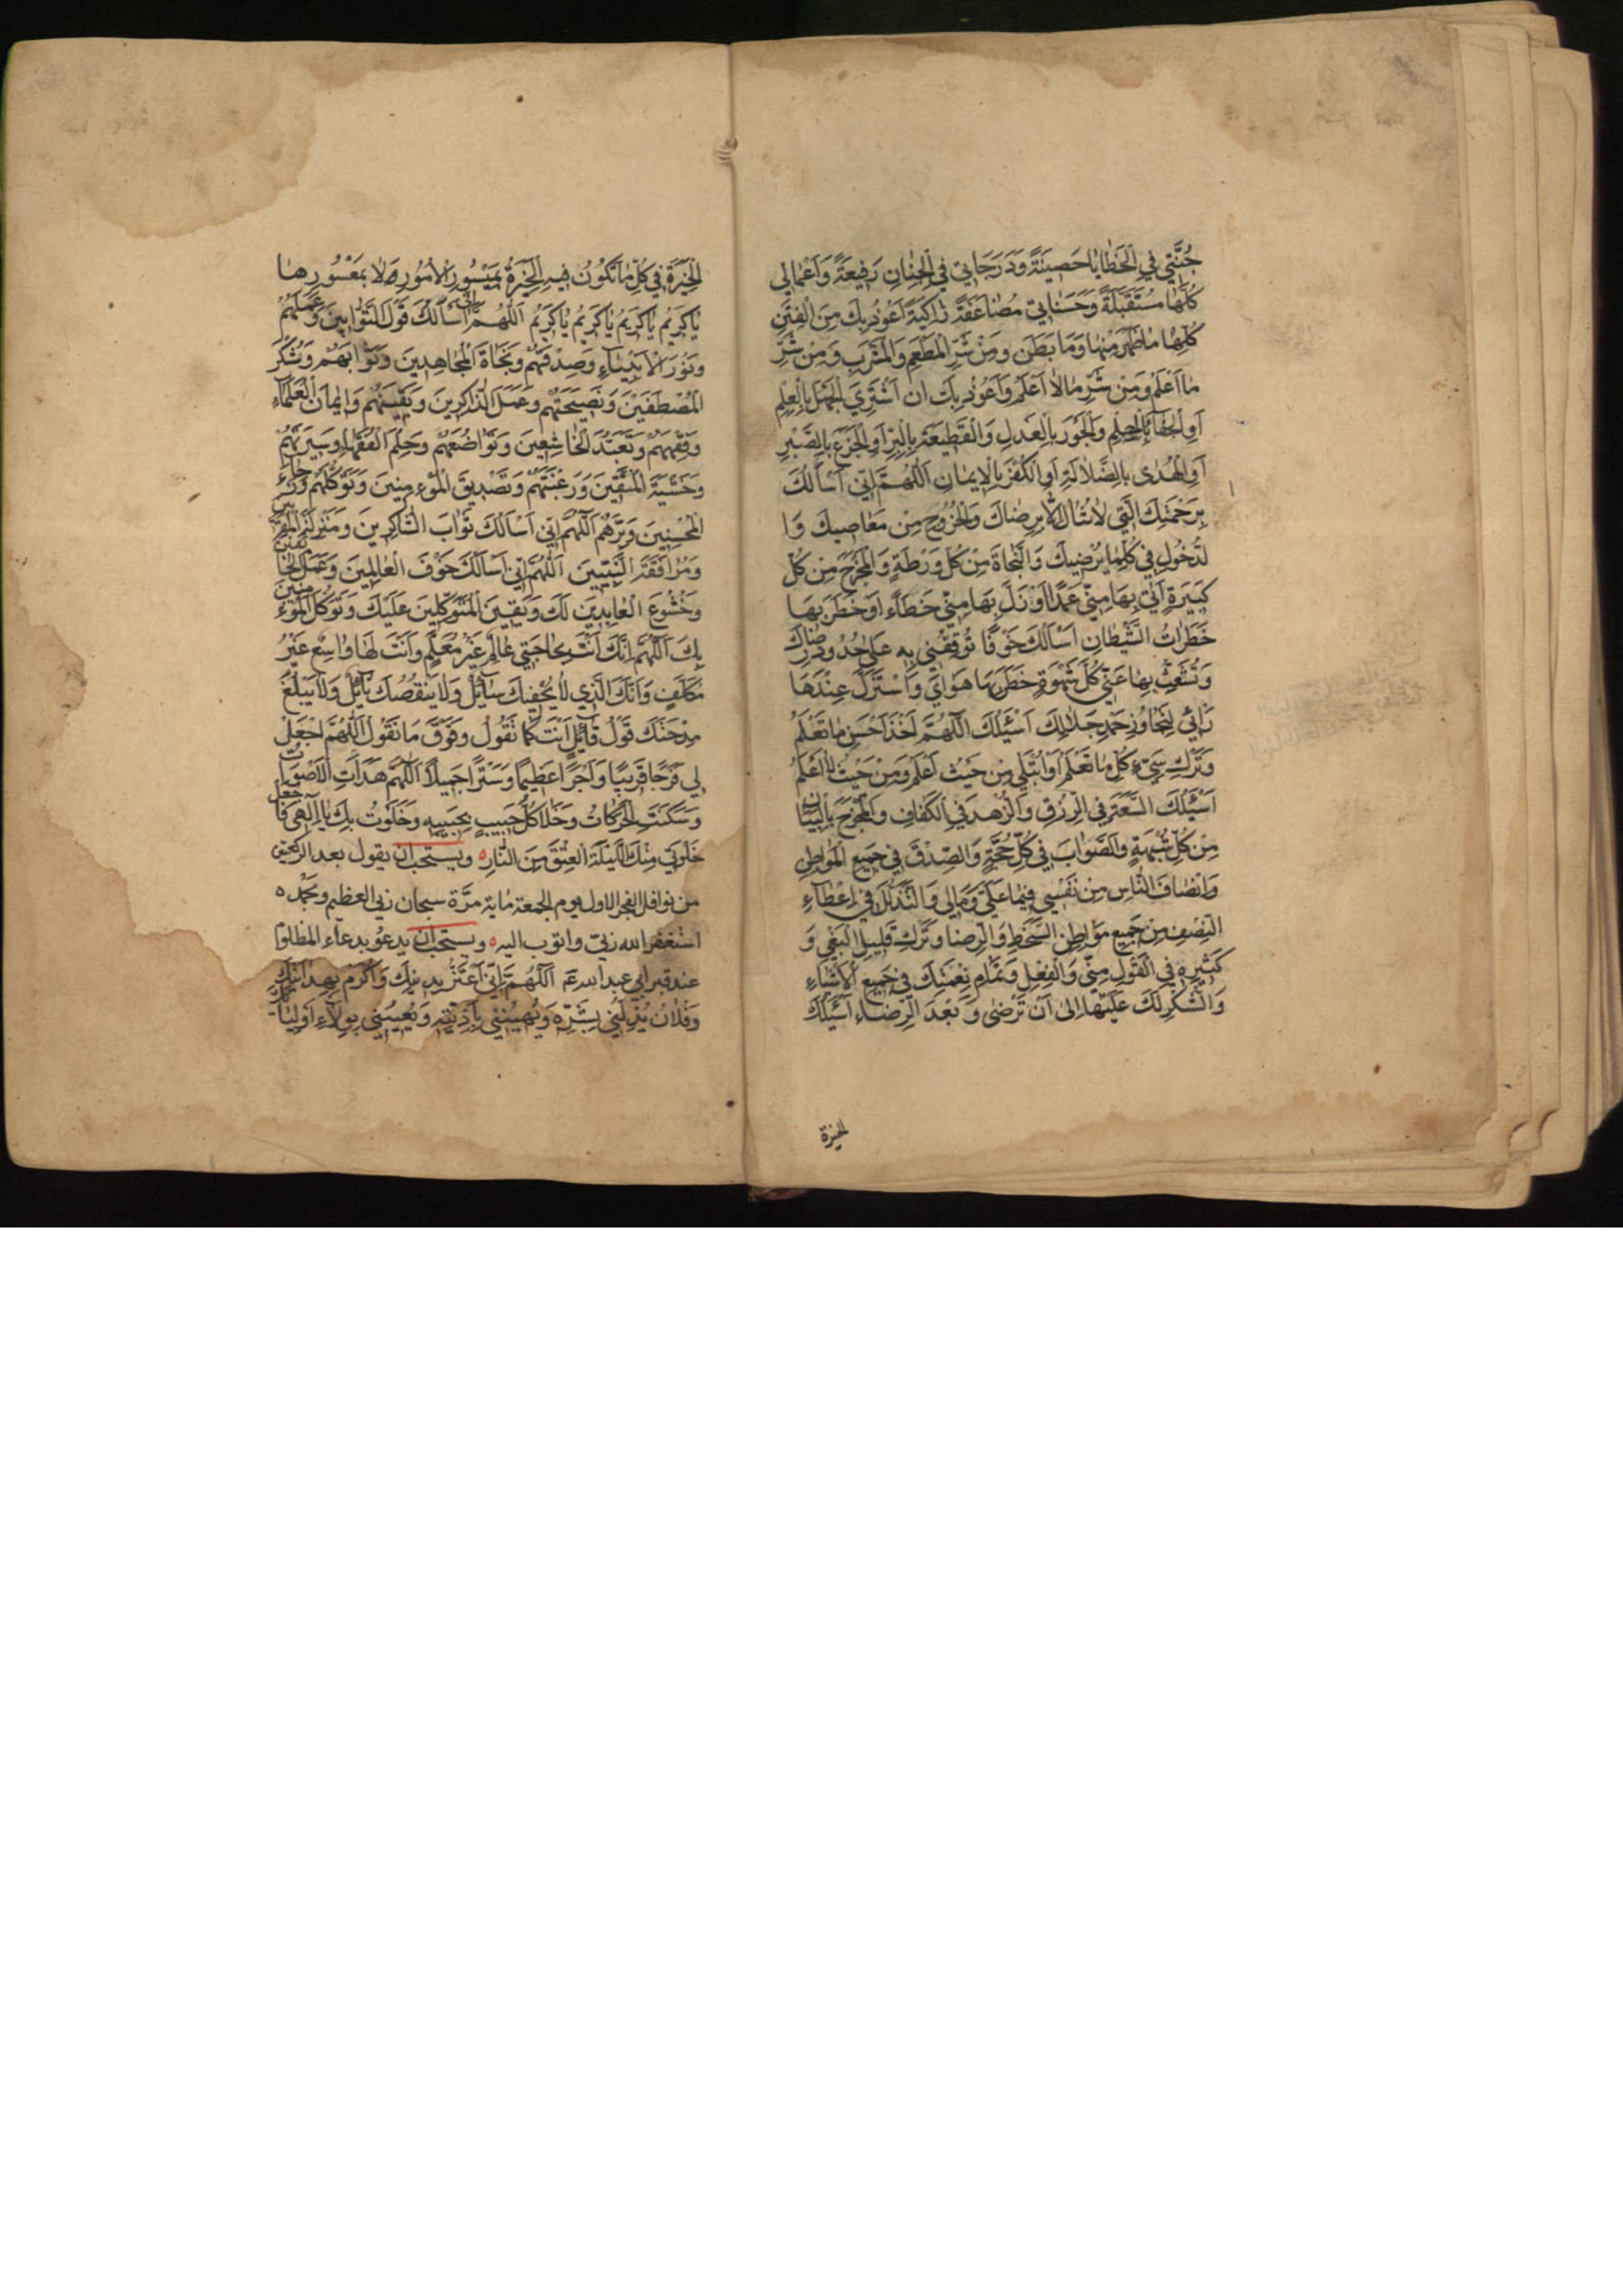 جُنَّتِي فِي الْخَطَايَا حَصِينَةً وَدَرَجَاتِي فِي الْجِنَانِ رَفِيعَةً وَاَعْمَالِي
كُلَّهَا مُتَقَبَّلَةً وَحَسَنَاتِي مُضَاعَفَةً زَاكِيَةً اَعُوذُ بِكَ مِنَ الْفِتَنِ
كُلِّهَا مَا ظَهَرَ مِنْهَا وَمَا بَطَنَ وَمِنْ شَرِّ الْمَطْعَمِ وَالْمَشْرَبِ وَمِنْ شَرِّ
مَا اَعْلَمُ وَمِنْ شَرِّ مَا لَا اَعْلَمُ وَاَعُوذُ بِكَ اَنْ اَشْتَرِيَ الْجَهْلَ بِالْعِلْمِ
اَوِ الْجَفَاءَ بِالْحِلْمِ وَالْجَوْرَ بِالْعَدْلِ وَالْقَطِيعَةَ بِالْبِرِّ اَوِ الْجَزَعَ بِالصَّبْرِ
اَوِ الْهُدٰى بِالضَّلَالَةِ اَوِ الْكُفْرَ بِالْاِيمَانِ اَللّٰهُمَّ اِنِّي اَسْاَلُكَ
بِرَحْمَتِكَ الَّتِي لَا تُنَالُ اِلَّا بِرِضَاكَ وَالْخُرُوجَ مِنْ مَعَاصِيكَ وَا
لدُّخُولَ فِي كُلِّمَا يُرْضِيكَ وَالنَّجَاةَ مِنْ كُلِّ وَرْطَةٍ وَالْمَخْرَجَ مِنْ كُلِّ
كَبِيرَةٍ اَتٰى بِهَا مِنِّي عَمْدًا اَوْ زَلَّ بِهَا مِنِّي خَطَاءً اَوْ خَطَرَ بِهَا
خَطَرَاتُ الشَّيْطَانِ اَسْاَلُكَ خَوْفًا تُوقِفُنِي بِهِ عَلٰى حُدُودِ رِضَاكَ
وَتُشَعِّثُ بِهَا عَنِّي كُلَّ شَهْوَةٍ خَطَرَ بِهَا هَوَايَ وَاسْتَزَلَّ عِنْدَهَا
رَائِي لِتَجَاوُزِ حَدِّ جَلَالِكَ اَسْئَلُكَ اَللّٰهُمَّ اَخْذَ اَحْسَنِ مَا تَعْلَمُ
وَتَرْكَ سَيِّءِ كُلِّ مَا تَعْلَمُ اَوْ اُبْتَلٰى مِنْ حَيْثُ اَعْلَمُ وَمِنْ حَيْثُ لَا اَعْلَمُ
اَسْئَلُكَ السَّعَةَ فِي الرِّزْقِ وَالزُّهْدَ فِي الْكَفَافِ وَالْمَخْرَجَ بِالْبَيَانِ
مِنْ كُلِّ شُبْهَةٍ وَالصَّوَابَ فِي كُلِّ حُجَّةٍ وَالصِّدْقَ فِي جَمِيعِ الْمَوَاطِنِ
وَاِنْصَافَ النَّاسِ مِنْ نَفْسِي فِيمَا عَلَيَّ وَمَالِي وَالتَّذَلُّلَ فِي اِعْطَاءِ
النِّصْفِ مِنْ جَمِيعِ مَوَاطِنِ السَّخَطِ وَالرِّضَا وَتَرْكَ قَلِيلِ الْبَغْيِ وَ
كَثِيرِهِ فِي الْقَوْلِ مِنِّي وَالْفِعْلِ وَتَمَامَ نِعْمَتِكَ فِي جَمِيعِ الْاَشْيَاءِ
وَالشُّكْرَ لَكَ عَلَيْهَا اِلٰى اَنْ تَرْضٰى وَبَعْدَ الرِّضَاءِ اَسْئَلُكَ
الخيرة
الْخِيَرَةَ فِي كُلِّ مَا تَكُونُ فِيهِ الْخِيَرَةُ بِمَيْسُورِ الْاُمُورِ لَا بِمَعْسُورِهَا
يَا كَرِيمُ يَا كَرِيمُ يَا كَرِيمُ يَا كَرِيمُ اَللّٰهُمَّ اِنِّي اَسْاَلُكَ قَوْلَ التَّوَّابِينَ وَعَمَلَهُمْ
وَنُورَ الْاَنْبِيَاءِ وَصِدْقَهُمْ وَنَجَاةَ الْمُجَاهِدِينَ وَثَوَابَهُمْ وَشُكْرَ
الْمُصْطَفَيْنَ وَنَصِيحَتَهُمْ وَعَمَلَ الذَّاكِرِينَ وَيَقِينَهُمْ وَاِيمَانَ الْعُلَمَاءِ
وَفِقْهَهُمْ وَتَعَبُّدَ الْخَاشِعِينَ وَتَوَاضُعَهُمْ وَحِلْمَ الْفُقَهَاءِ وَسِيرَتَهُمْ
وَخَشْيَةَ الْمُتَّقِينَ وَرَغْبَتَهُمْ وَتَصْدِيقَ الْمُؤْمِنِينَ وَتَوَكُّلَهُمْ وَرَجَاءَ
الْمُحْسِنِينَ وَبِرَّهُمْ اَللّٰهُمَّ اِنِّي اَسْاَلُكَ ثَوَابَ الشَّاكِرِينَ وَمَنْزِلَةَ الْمُقَرَّبِينَ
وَمُرَافَقَةَ النَّبِيِّينَ اَللّٰهُمَّ اِنِّي اَسْاَلُكَ خَوْفَ الْعَالِمِينَ وَعَمَلَ الْخَائِفِينَ
وَخُشُوعَ الْعَابِدِينَ لَكَ وَيَقِينَ الْمُتَوَكِّلِينَ عَلَيْكَ وَتَوَكُّلَ الْمُؤْمِنِينَ
بِكَ اَللّٰهُمَّ اِنَّكَ اَنْتَ بِحَاجَتِي عَالِمٌ غَيْرُ مُعَلَّمٍ وَاَنْتَ لَهَا وَاسِعٌ غَيْرُ
مُكَلَّفٍ وَاَنْتَ الَّذِي لَا يُحْفِيكَ سَائِلٌ وَلَا يَنْقُصُكَ نَائِلٌ وَلَا يَبْلُغُ
مِدْحَتَكَ قَوْلُ قَائِلٍ اَنْتَ كَمَا تَقُولُ وَفَوْقَ مَا نَقُولُ اَللّٰهُمَّ اجْعَلْ
لِي فَرَجًا قَرِيبًا وَاَجْرًا عَظِيمًا وَسَتْرًا جَمِيلًا اَللّٰهُمَّ هَدَاَتِ الْاَصْوَاتُ
وَسَكَنَتِ الْحَرَكَاتُ وَخَلَا كُلُّ حَبِيبٍ بِحَبِيبِهِ وَخَلَوْتُ بِكَ يَا اِلٰهِي فَاجْعَلْ
خَلْوَتِي مِنْكَ اللَّيْلَةَ الْعِتْقَ مِنَ النَّارِ ه ويستحب ان يقول بعد الركعتين
من نوافل الفجر الاول يوم الجمعة مایة مرّة سبحان ربي العظيم وبحمده
استغفر الله ربّي واتوب اليه ه ويستحب ان يدعو بدعاء المظلوم
عند قبر ابي عبد الله عم اَللّٰهُمَّ اِنِّي اَعْتَزُّ بِدِينِكَ وَاَكْرُمُ بِهِدَايَتِكَ
وَفُلَانٌ يُذِلُّنِي بِشَرِّهِ وَيُهِينُنِي بِاَذِيَّتِهِ وَيُعِيبُنِي بِوَلَاءِ اَوْلِيَا